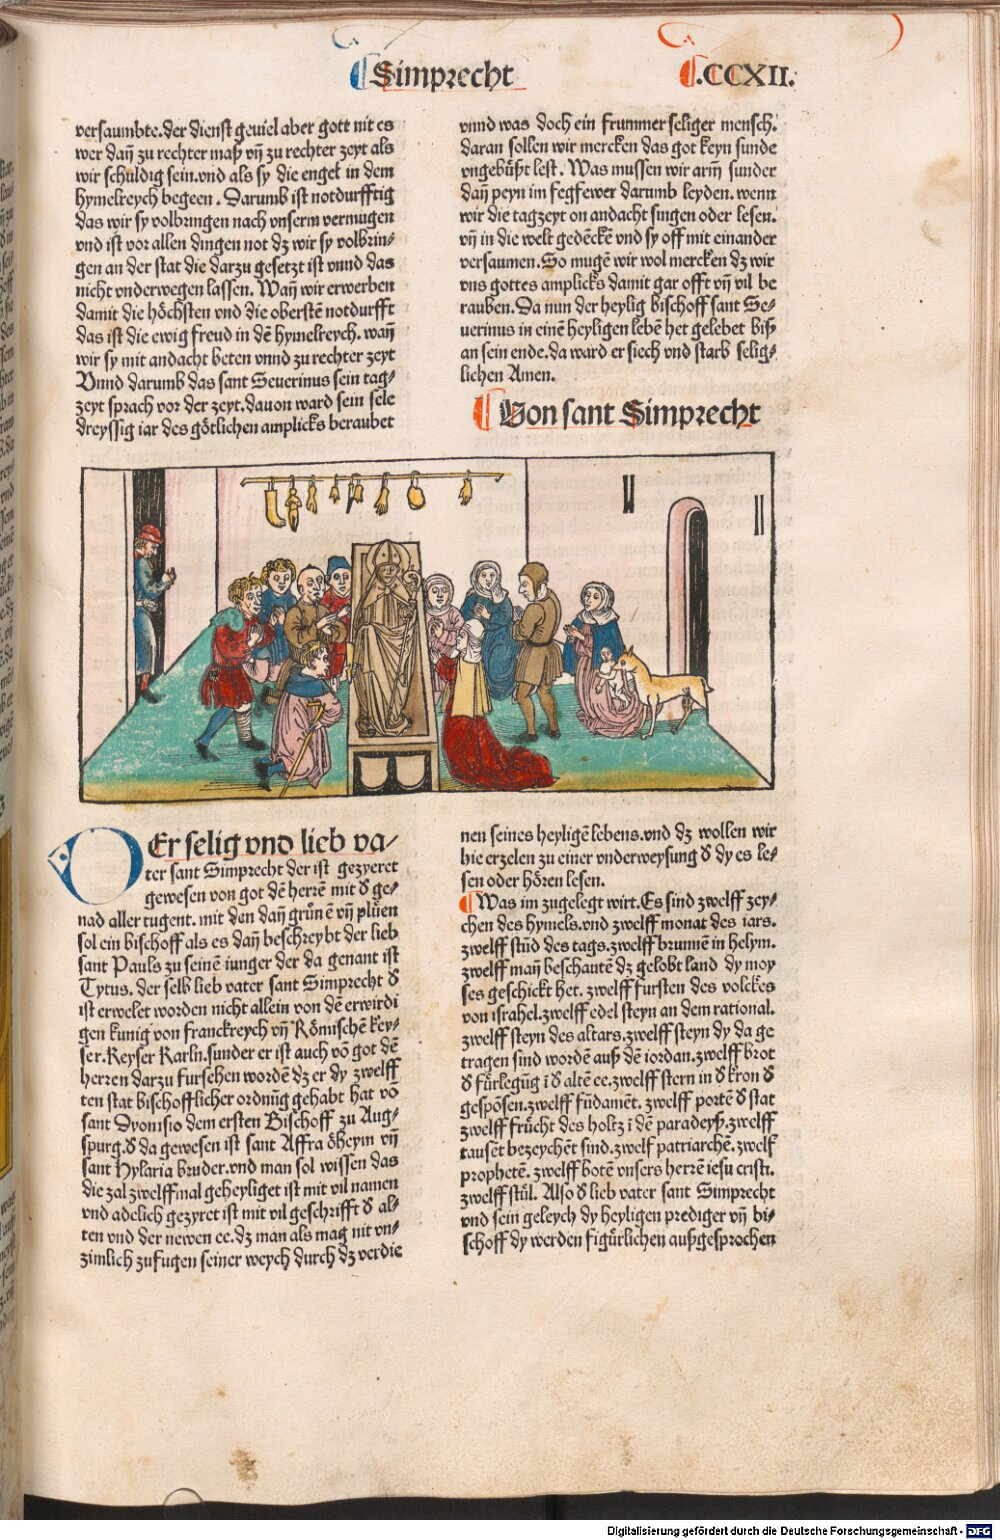 Simprecht
.CCXII.
versaumbte.der dienst geuiel aber gott nit es
wer dañ zu rechter maß vñ zu rechter zeyt als
wir schuldig sein.vnd als sy die engel in dem
hymelreych begeen. Darumb ist notdurfftig
das wir sy volbringen nach vnserm vermugen
vnd ist vor allen dingen not dz wir sy volbrin⸗
gen an der stat die darzu gesetzt ist vnnd das
nicht vnderwegen lassen. Wañ wir erwerben
damit die höchsten vnd die oberstē notdurfft
das ist die ewig freud in dē hymelreych.wañ
wir sy mit andacht beten vnnd zu rechter zeyt
Vnnd darumb das sant Seuerinus sein tag⸗
zeyt sprach vor der zeyt.dauon ward sein sele
dreyssig iar des götlichen amplicks beraubet
vnnd was doch ein frummer seliger mensch.
daran sollen wir mercken das got keyn sunde
vngebüßt lest. Was mussen wir arm̄ sunder
dañ peyn im fegfewer darumb leyden.wenn
wir die tagzeyt on andacht singen oder lesen.
vñ in die welt gedēckē vnd sy off mit einander
versaumen.So mugē wir wol mercken dz wir
vns gottes amplicks damit gar offt vñ vil be
rauben.Da nun der heylig bischoff sant Se⸗
uerinus in einē heyligen lebē het gelebet biß
an sein ende.da ward er siech vnd starb selig⸗
lichen Amen.
Von sant Simprecht
DEr selig vnd lieb va⸗
ter sant Simprecht der ist gezyeret
gewesen von got dē herrē mit d̕ ge⸗
nad aller tugent.mit den dañ grünē vñ plüen
sol ein bischoff als es dañ beschreybt der lieb
sant Pauls zu seinē iunger der da genant ist
Tytus.der selb lieb vater sant Simprecht d̕
ist erwelet worden nicht allein von dē erwirdi
gen kunig von franckreych vñ Römischē key⸗
ser.Keyser Karln.sunder er ist auch vō got dē
herren darzu fursehen wordē dz er dy zwelff
ten stat bischofflicher ordnūg gehabt hat vō
sant Dyonisio dem ersten Bischoff zu Aug⸗
spurg.d̕ da gewesen ist sant Affra öheym vñ
sant Hylaria bruder.vnd man sol wissen das
die zal zwelffmal geheyliget ist mit vil namen
vnd adelich gezyret ist mit vil geschrifft d̕ al⸗
ten vnd der newen ee.dz man als mag nit vn⸗
zimlich zufugen seiner weych durch dz verdie
nen seines heyligē lebens.vnd dz wollen wir
hie erzelen zu einer vnderweysung d̕ dy es le⸗
sen oder hören lesen.
Was im zugelegt wirt.Es sind zwelff zey⸗
chen des hymels.vnd zwelff monat des iars.
zwelff stūd des tags.zwelff brunnē in helym.
zwelff mañ beschautē dz gelobt land dy moy
ses geschickt het.zwelff fursten des volckes
von israhel.zwelff edel steyn an dem rational.
zwelff steyn des altars.zwelff steyn dy da ge
tragen sind wordē auß dē iordan.zwelff brot
d̕ fürlegūg ī d̕ altē ee.zwelff stern in d̕ kron d̕
gespōsen.zwelff fūdamēt.zwelff portē d̕ stat
zwelff frücht des holtz ī dē paradeyß.zwelff
tausēt bezeychēt sind.zwelf patriarchē.zwelf
prophetē.zwelff botē vnsers herrē iesu cristi.
zwelff stül. Also d̕ lieb vater sant Simprecht
vnd sein geleych dy heyligen prediger vñ bi⸗
schoff dy werden figürlichen außgesprochen
Digitalisierung gefördert durch die Deutsche Forschungsgemeinschaft - DFG